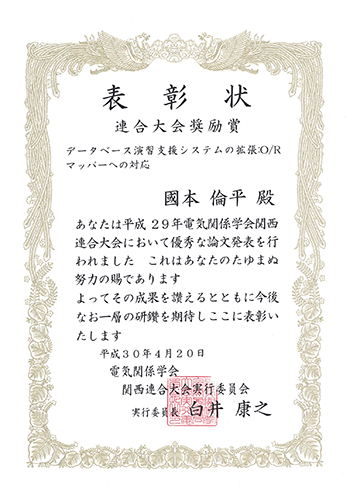 表彰状
連合大会奨励賞
データベース演習支援システムの拡張:O/R
マッパーへの対応
國本 倫平 殿
あなたは平成29年電気関係学会関西
連合大会において優秀な論文発表を行
われました これはあなたのたゆまぬ
努力の賜であります
よってその成果を讃えるとともに今後
なお一層の研鑽を期待しここに表彰い
たします
平成30年4月20日
電気関係学会
関西連合大会実行委員会
実行委員長 白井 康之